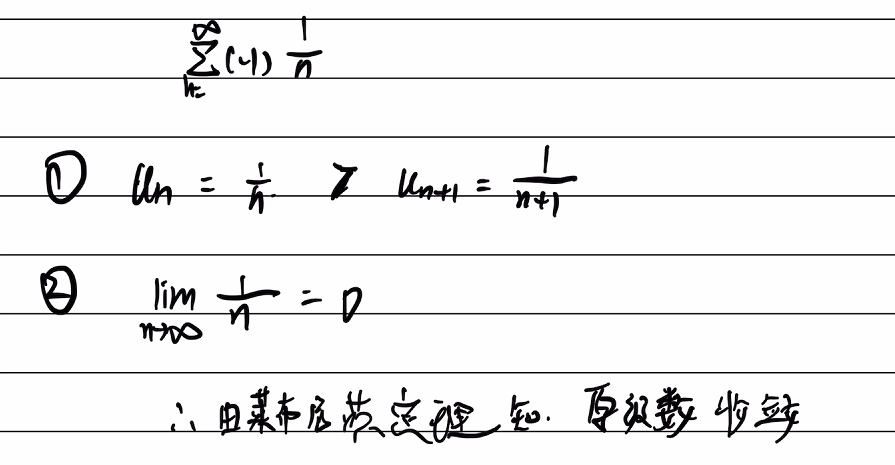 ∞
∑ (-1) 1/n
n=
① Un = 1/n > Un+1 = 1/(n+1)
② lim n→∞ 1/n = 0
∴ 由莱布尼茨定理知. 原级数收敛